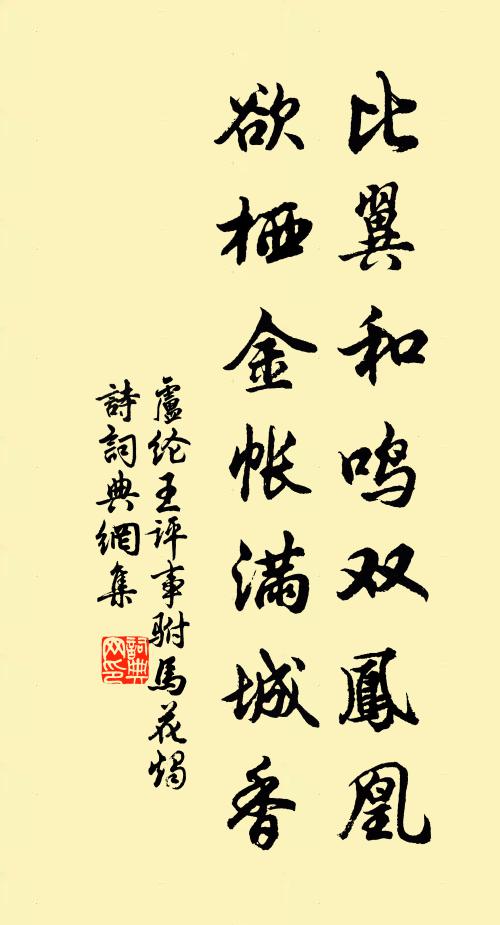 比翼和鸣双鳳凰
欲栖金帐满城香
盧纶王评事駙馬花烛
詩詞典網集
詞典網印